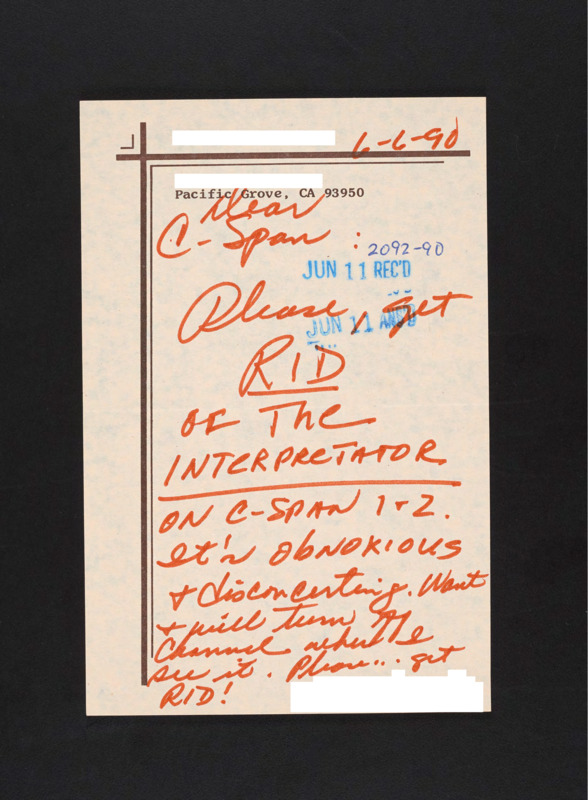 6-6-90
Pacific Grove, CA 93950
Dear
C-Span :
2092-90
JUN 11 REC'D
Please, get
JUN 11 ANS'D
RID
OF The
INTERPRETATOR
ON C-SPAN 1+2.
It's obnoxious
+ disconcerting. Want
+ will turn the
Channel when I
see it. Please... get
RID!